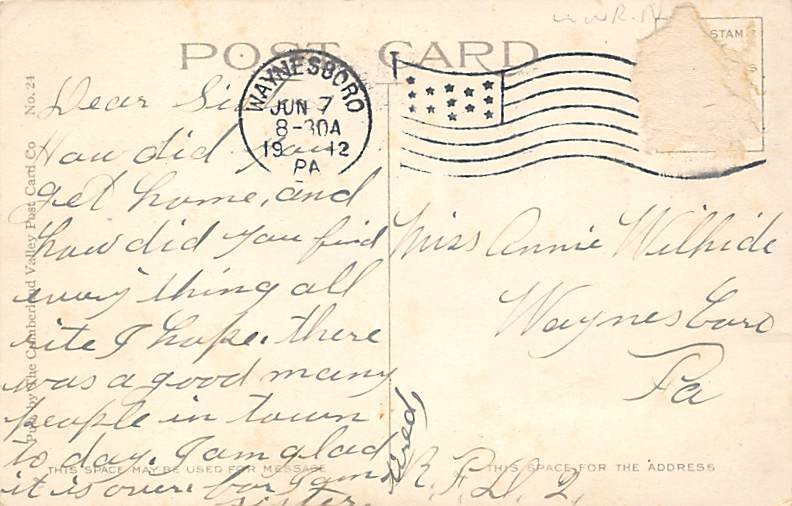 POST CARD
STAM
WAYNESBORO
JUN 7
8-30A
1912
PA
No. 24
Pub. by The Cumberland Valley Post Card Co
Dear
How did you
get home, and
how did you find
every thing all
rite I hope. there
was a good many
people in town
to day. I am glad
it is over. for I am
tired
sister
Miss Annie Wilhide
Waynesboro
Pa
R. F. D. 2,
THIS SPACE MAY BE USED FOR MESSAGE
THIS SPACE FOR THE ADDRESS